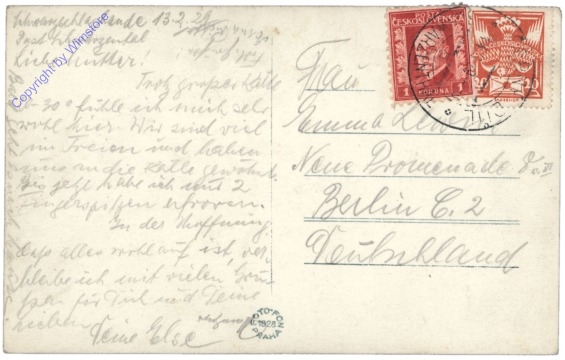 13.2.29
Post Schwarzental
Liebe Mutter!
Trotz großer Kälte
-30° fühle ich mich sehr
wohl hier. Wir sind viel
im Freien und haben
uns an die Kälte gewöhnt.
Bis jetzt habe ich nur 2
erfroren.
In der Hoffnung
dass alles wohl auf ist, ver-
bleibe ich mit vielen Grüs-
sen für Dich und Deine
Lieben
Deine Else
Frau
Emma
Neue Promenade
Berlin C. 2
Deutschland
ČESKOSLOVENSKÁ
1 KORUNA 1
20 20
FOTOFON
1928
PRAHA
Copyright by Wimstore